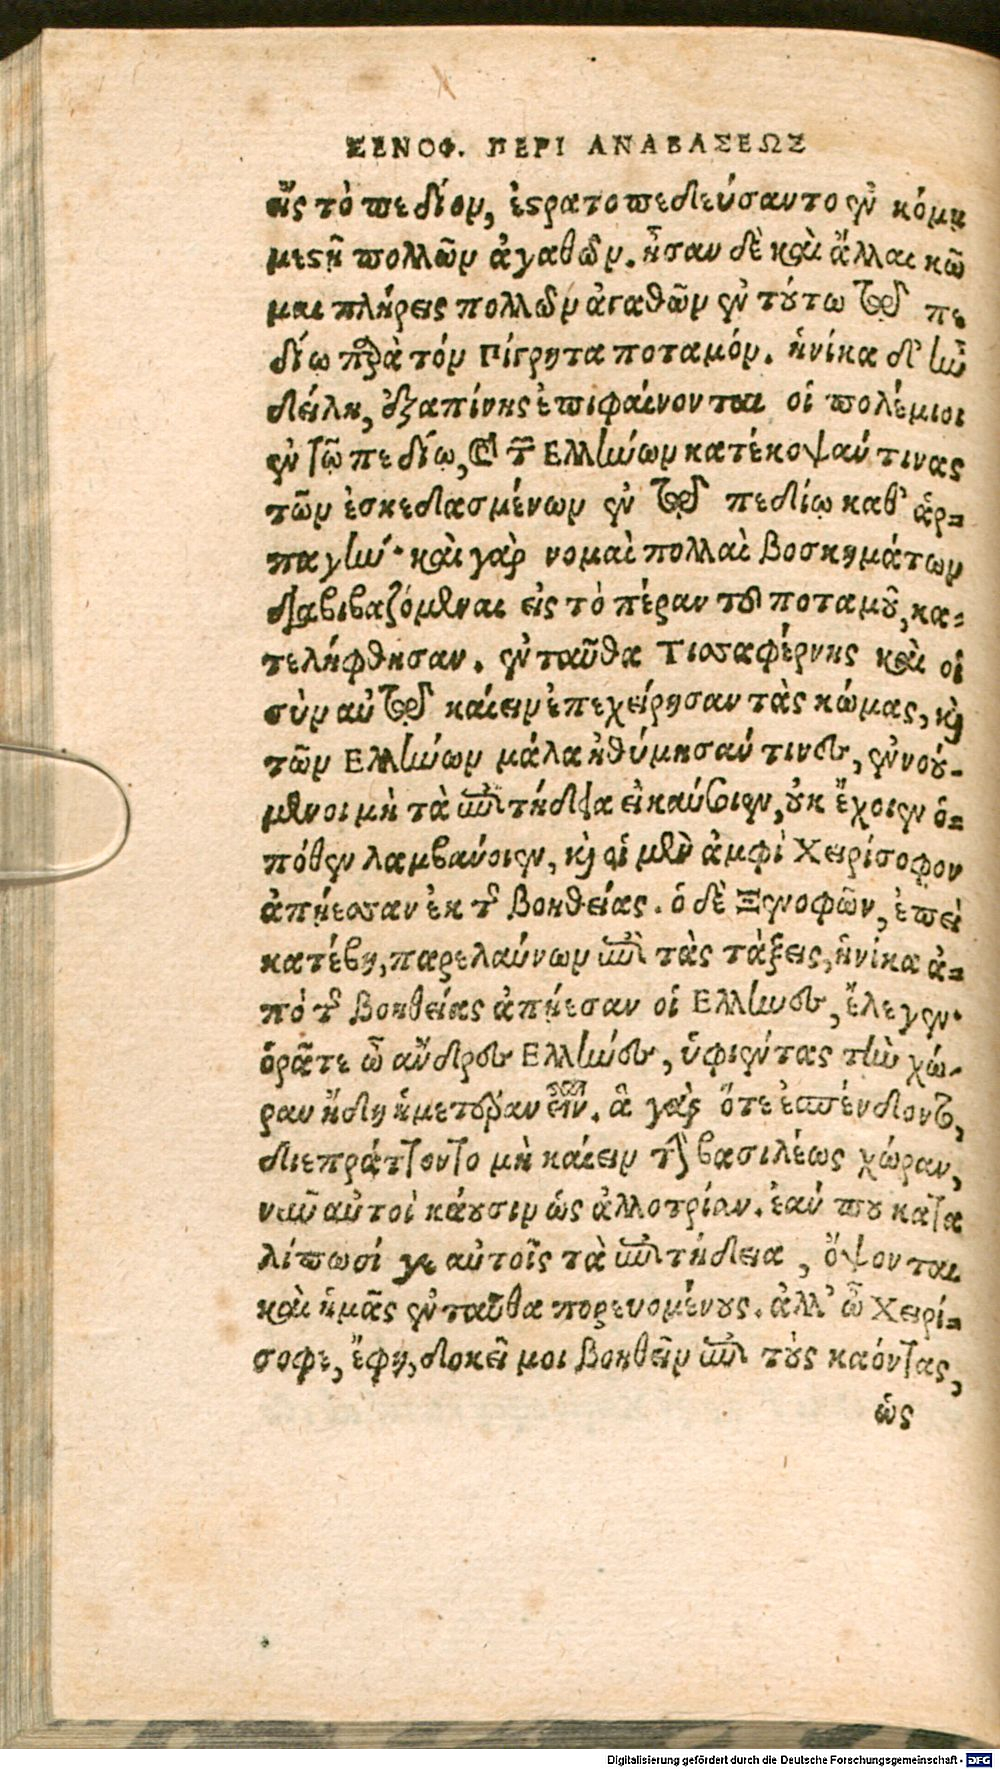 ΞΕΝΟΦ. ΠΕΡΙ ΑΝΑΒΑΣΕΩΣ
εἰς τὸ πεδίον, ἐστρατοπεδεύσαντο ἐν κώμῃ
μεστῇ πολλῶν ἀγαθῶν. ἦσαν δὲ καὶ ἄλλαι κῶ
μαι πλήρεις πολλῶν ἀγαθῶν ἐν τούτω τῷ πε
δίῳ παρὰ τὸν Πίγρητα ποταμόν. ἡνίκα δ' ἦν
δείλη, ἐξαπίνης ἐπιφαίνονται οἱ πολέμιοι
ἐν τῷ πεδίῳ, καὶ τῶν Ἑλλήνων κατέκοψάν τινας
τῶν ἐσκεδασμένων ἐν τῷ πεδίῳ καθ' ἁρ=
παγήν· καὶ γὰρ νομαὶ πολλαὶ βοσκημάτων
διαβιβαζόμεναι εἰς τὸ πέραν τοῦ ποταμοῦ, κα=
τελήφθησαν. ἐνταῦθα Τισσαφέρνης καὶ οἱ
σὺν αὐτῷ καίειν ἐπεχείρησαν τὰς κώμας, καὶ
τῶν Ἑλλήνων μάλα ἠθύμησάν τινες, ἐννού-
μενοι μὴ τὰ ἐπιτήδεια εἰ καύσοιεν, οὐκ ἔχοιεν ὁ=
πόθεν λαμβάνοιεν, καὶ οἱ μὲν ἀμφὶ Χειρίσοφον
ἀπῄεσαν ἐκ τῆς βοηθείας. ὁ δὲ Ξενοφῶν, ἐπεὶ
κατέβη, παρελαύνων ἐπὶ τὰς τάξεις, ἡνίκα ἀ=
πὸ τῆς βοηθείας ἀπῄεσαν οἱ Ἕλληνες, ἔλεγεν·
ὁρᾶτε ὦ ἄνδρες Ἕλληνες, ὑφιέντας τὴν χώ-
ραν ἤδη ἡμετέραν εἶναι. ἃ γὰρ ὅτε ἐσπένδοντο,
διεπράττοντο μὴ καίειν τὴν βασιλέως χώραν,
νῦν αὐτοὶ κάουσιν ὡς ἀλλοτρίαν. ἐάν που κατα
λίπωσί γε αὐτοῖς τὰ ἐπιτήδεια, ὄψονται
καὶ ἡμᾶς ἐνταῦθα πορευομένους. ἀλλ' ὦ Χειρί=
σοφε, ἔφη, δοκεῖ μοι βοηθεῖν ἐπὶ τοὺς κάοντας,
ὡς
Digitalisierung gefördert durch die Deutsche Forschungsgemeinschaft - DFG